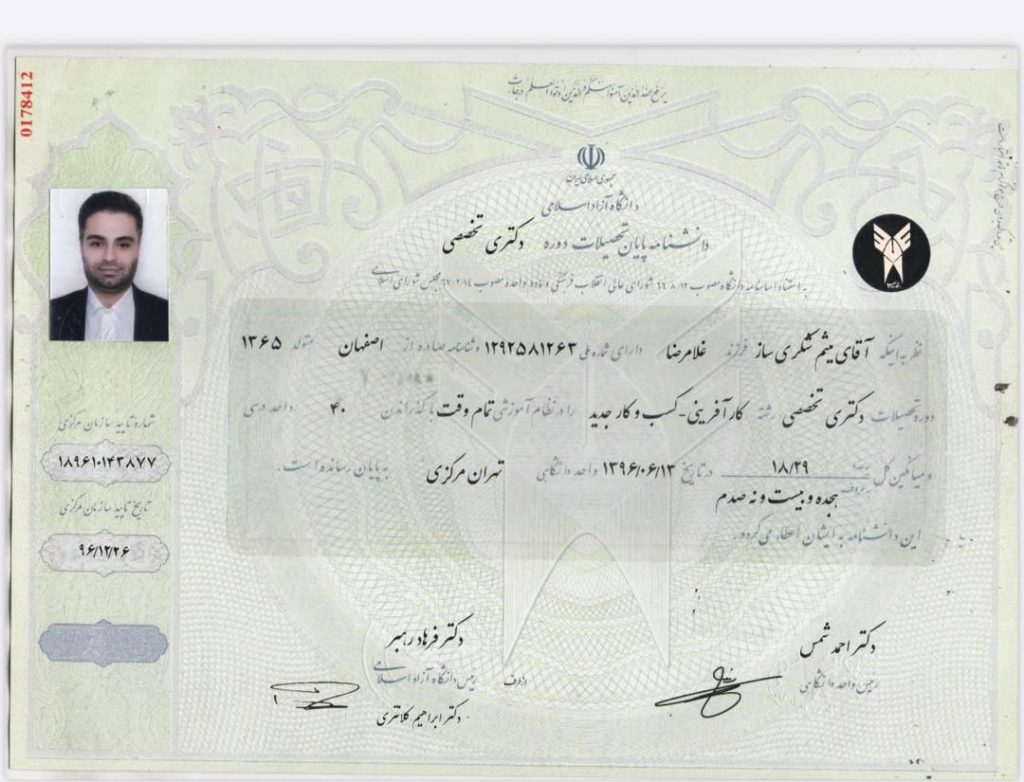 0178412
یرفع الله الذین آمنوا منکم و الذین اوتوا العلم درجات
جمهوری اسلامی ایران
دانشگاه آزاد اسلامی
دانشنامه پایان تحصیلات دوره دکتری تخصصی
به استناد اساسنامه دانشگاه مصوب ۶۶/۸/۱۲ شورای عالی انقلاب فرهنگی و ماده واحده مصوب ۶۷/۲/۱۴ مجلس شورای اسلامی
نظر به اینکه آقای میثم شکری ساز فرزند غلامرضا دارای شماره ملی ۱۲۹۲۵۸۱۲۶۳ و شناسنامه صادره از اصفهان متولد ۱۳۶۵
دوره تحصیلات دکتری تخصصی رشته کارآفرینی-کسب و کار جدید را در نظام آموزشی تمام وقت با گذراندن ۴۰ واحد درسی
و میانگین کل به عدد ۱۸/۲۹ در تاریخ ۱۳۹۶/۰۶/۱۳ واحد دانشگاهی تهران مرکزی به پایان رسانده است.
به حروف هجده و بیست و نه صدم
این دانشنامه به ایشان اعطا می گردد.
شماره تایید سازمان مرکزی
۱۸۹۶۱۰۱۴۳۸۷۷
تاریخ تایید سازمان مرکزی
۹۶/۱۲/۲۶
دکتر احمد شمس
رئیس واحد دانشگاهی
دکتر فرهاد رهبر
رئیس دانشگاه آزاد اسلامی
از طرف
دکتر ابراهیم کلانتری